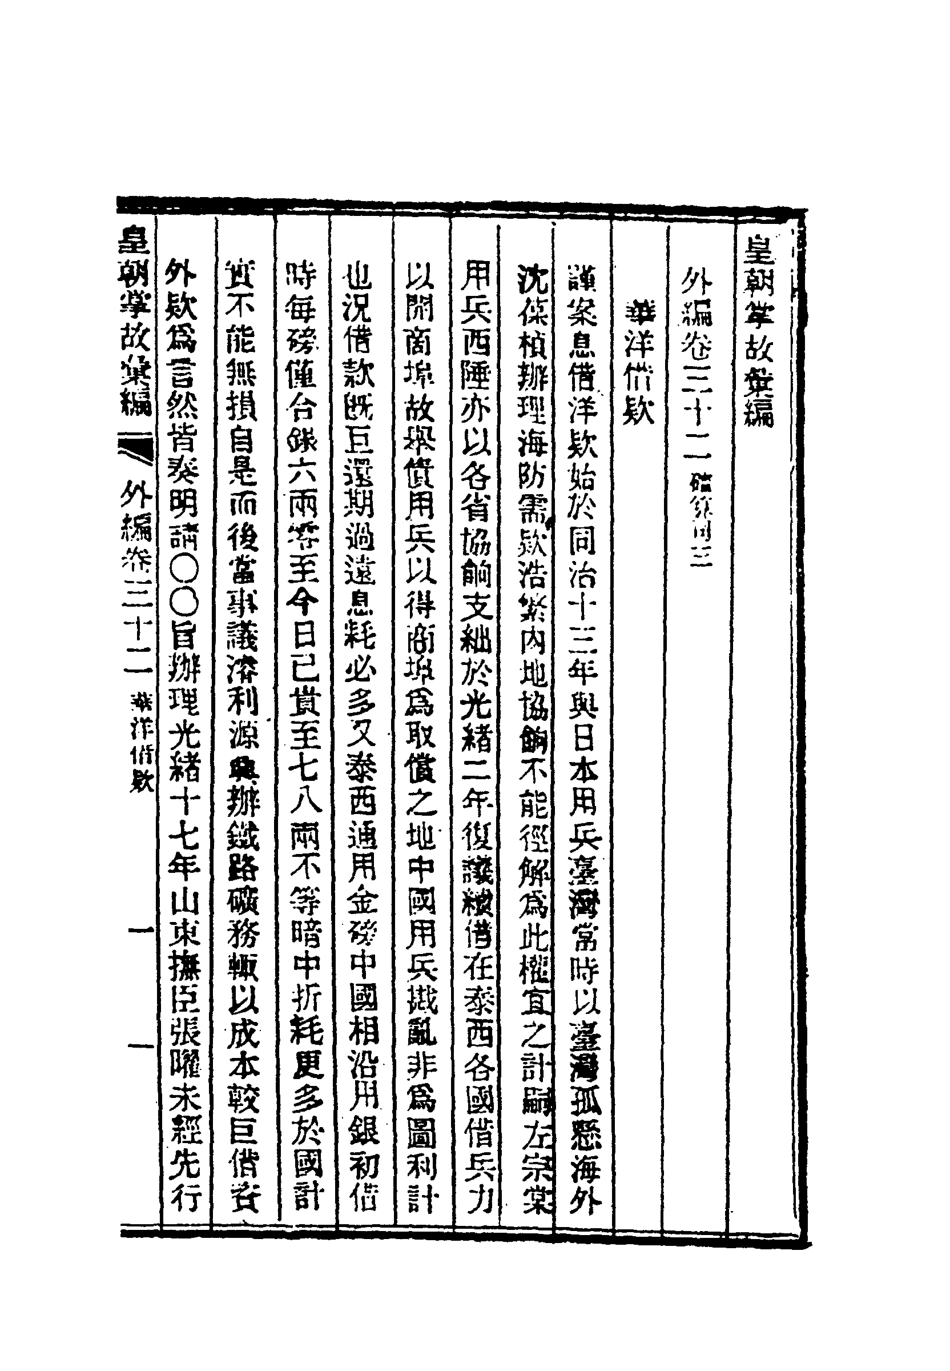 皇朝掌故彙編
外編卷三十二
華洋借款
謹案息借洋款始於同治十三年與日本用兵臺灣當時以臺灣孤懸海外
沈葆楨辦理海防需款浩繁內地協餉不能徑解爲此權宜之計嗣左宗棠
用兵西陲亦以各省協餉支絀於光緒二年復議續借在泰西各國借兵力
以開商埠故舉債用兵以得商埠爲取償之地中國用兵戡亂非爲圖利計
也況借款旣巨還期過遠息耗必多又泰西通用金磅中國相沿用銀初借
時每磅僅合銀六兩零至今日已貴至七八兩不等暗中折耗更多於國計
實不能無損自是而後當事議濬利源興辦鐵路礦務輒以成本較巨借資
外款爲言然皆奏明請〇〇旨辦理光緒十七年山東撫臣張曜未經先行
皇朝掌故彙編 外編卷三十二 華洋借款 一 一